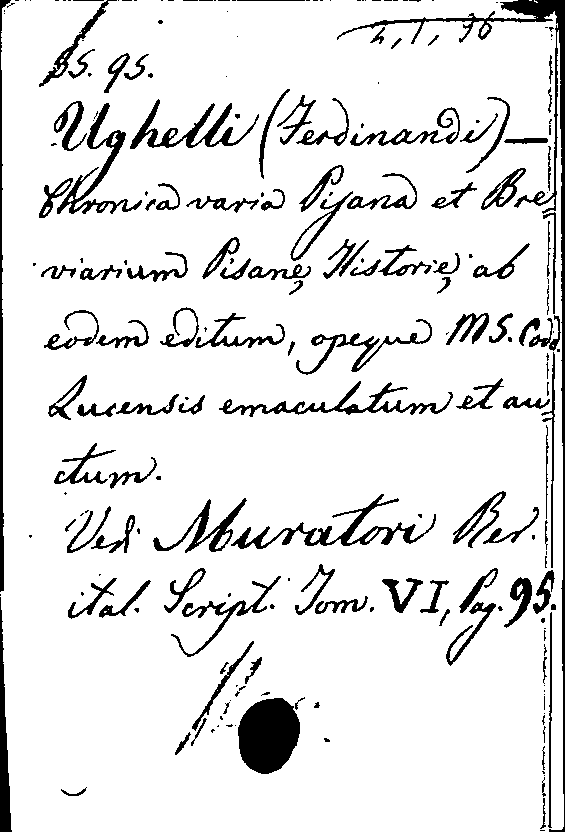 2, 1, 36
95.
Ughelli (Ferdinandi) —
Chronica varia Pisana et Bre=
viarium Pisanę Historię, ab
eodem editum, opeque MS. Cod.
Lucensis emaculatum et au=
ctum.
Vedi Muratori Rer.
ital. Script. Tom. VI, Pag. 95.